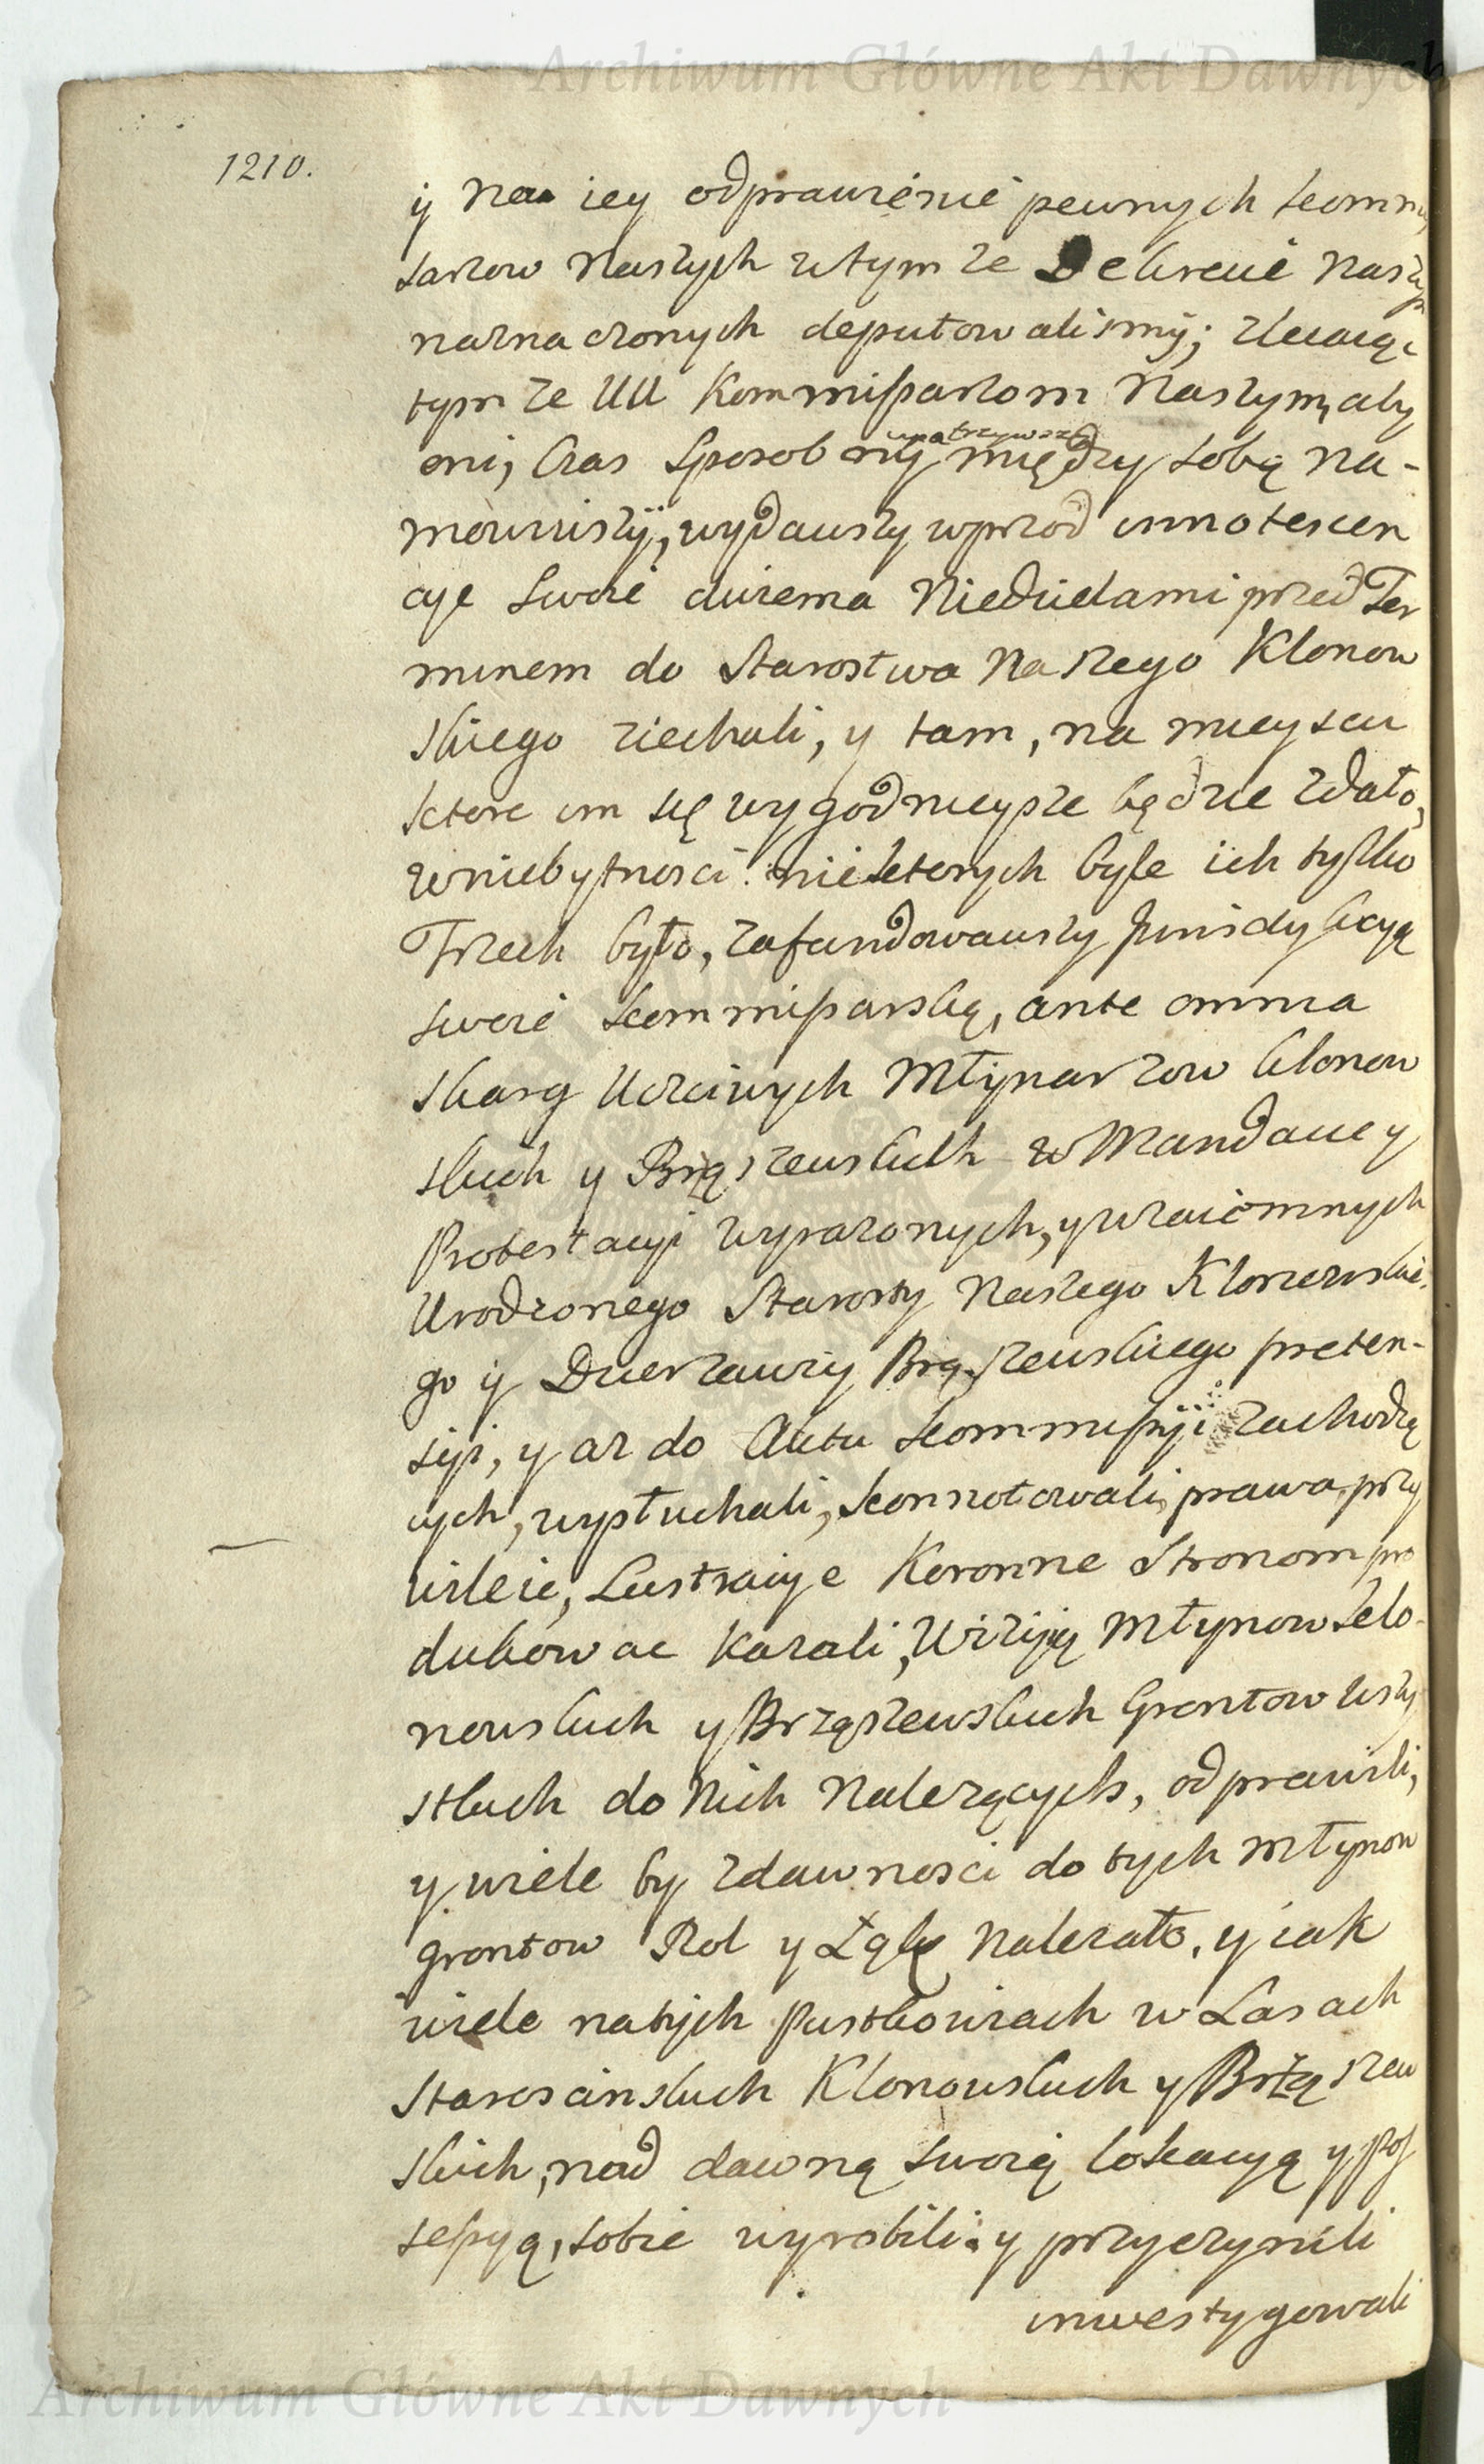 Archiwum Główne Akt Dawnych
1210.
ÿ na iey odprawienie pewnych kommi
sarzow naszych wtym ze Dekrecie naszym
naznaczonych deputowalismÿ; zlecaiąc
tym ze UU Kommissarzom Naszym, aby
oni, Czas sposobnÿ upatrzywszy między sobą na-
mowiwszÿ, wydawszy wprzod innotescen
cye swoie dwiema Niedzielami przed Ter
minem do Starostwa Naszego Klonow
skiego ziechali, y tam, na mieyscu
ktore im się wygodnieysze będzie zdało,
wniebytnosci niektorych byle ich tylko
Trzech było, zafundowawszy Jurisdykcyą
swoię kommissarską, ante omnia
skarg Uczciwych Młÿnarzow klonow
skich y Brąszewskich w Mandacie y
Protestacyi wyrazonych, y wzaiemnych
Urodzonego Starosty Naszego Klonowskie-
go ÿ Dzierzawcy Brąszewskiego preten-
syi, y az do Aktu kommissÿi zachodzą
cych, wysłuchali, konnotowali, prawa, przy
wileie, Lustracye Koronne Stronom pro
dukowac kazali, Wizÿię Młynow klo-
nowskich y Brząszewskich Gruntow wszy
stkich do Nich Nalezących, odprawili,
y wiele by zdawnosci do tych Młynow
gruntow Rol y Łąk Nalezało, y iak
wiele natÿch Pustkowiach w Lasach
Staroscinskich Klonowskich y Brżąszew
skich, nad dawną swoię lokacyą y pos
sessyą, sobie wyrobili y przyczynili
inwestygowali
Archiwum Główne Akt Dawnych